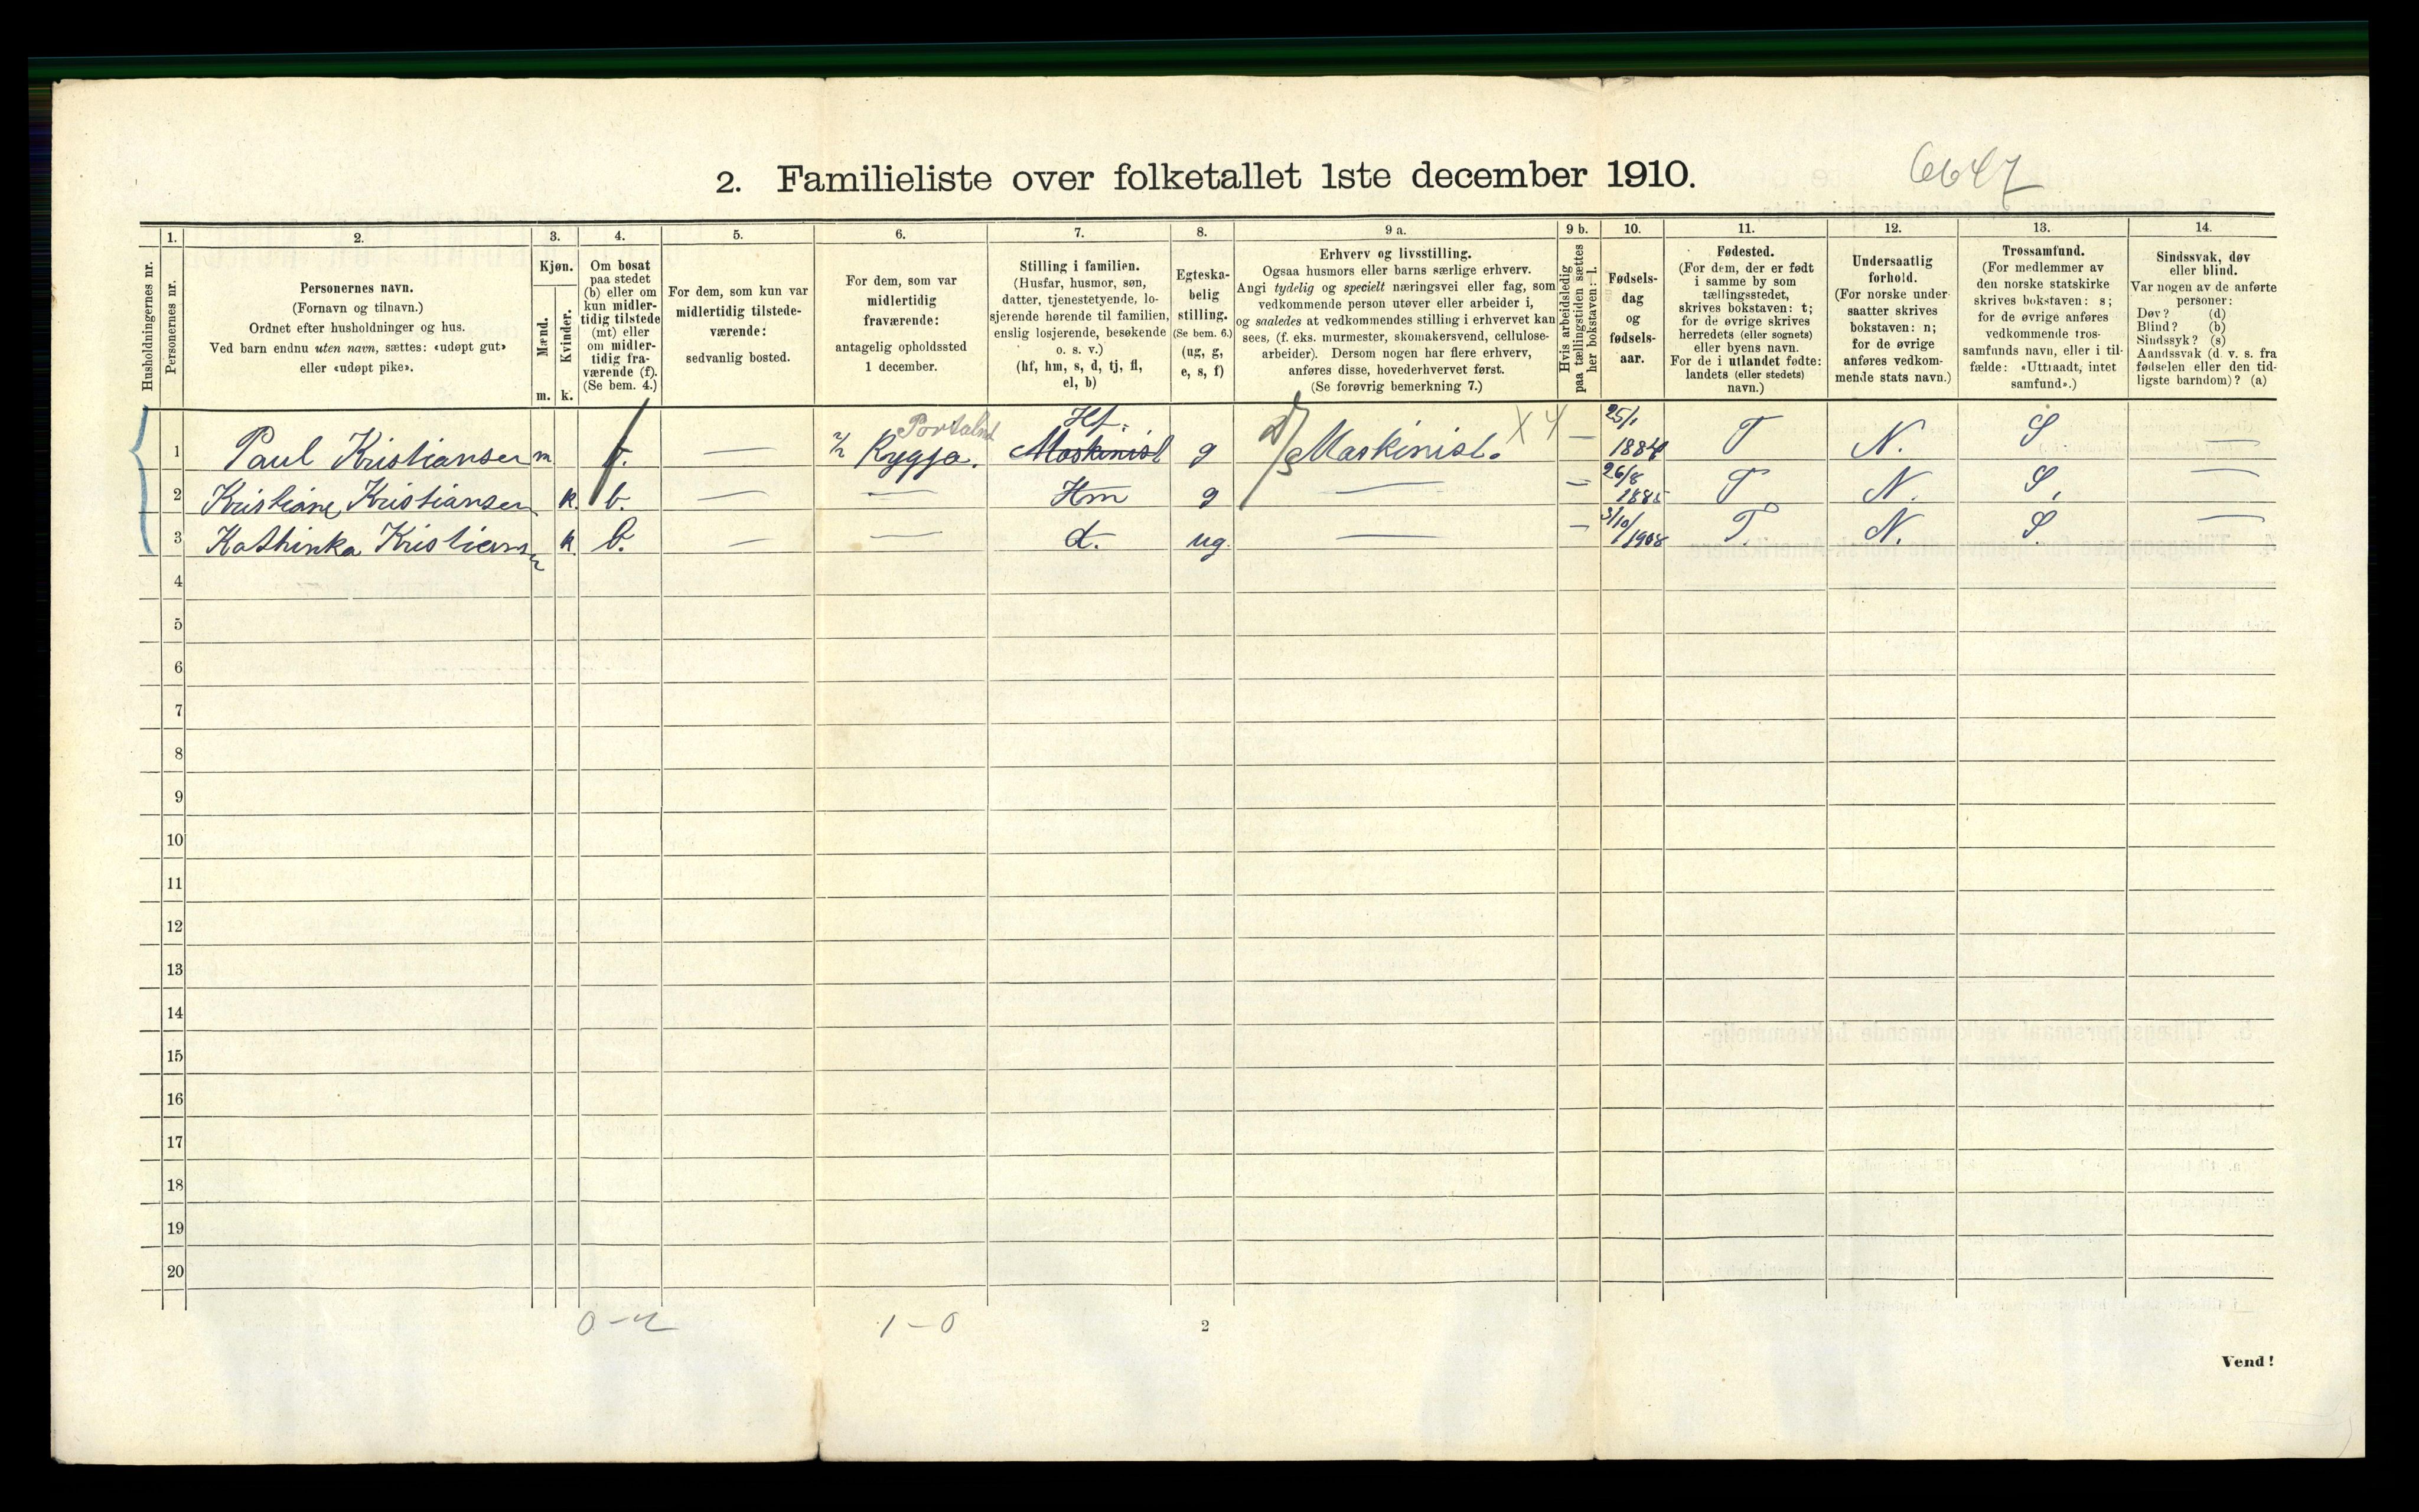 6647
2. Familieliste over folketallet 1ste december 1910.
Husholdningernes nr.
1.
Personernes nr.
2.
Personernes navn.
(Fornavn og tilnavn.)
Ordnet efter husholdninger og hus.
Ved barn endnu uten navn, sættes: «udøpt gut»
eller «udøpt pike».
3.
Kjøn.
Mænd.
Kvinder.
m. k.
4.
Om bosat
paa stedet
(b) eller om
kun midler-
tidig tilstede
(mt) eller
om midler-
tidig fra-
værende (f).
(Se bem. 4.)
5.
For dem, som kun var
midlertidig tilstede-
værende:
sedvanlig bosted.
6.
For dem, som var
midlertidig
fraværende:
antagelig opholdssted
1 december.
7.
Stilling i familien.
(Husfar, husmor, søn,
datter, tjenestetyende, lo-
sjerende hørende til familien,
enslig losjerende, besøkende
o. s. v.)
(hf, hm, s, d, tj, fl,
el, b)
8.
Egteska-
belig
stilling.
(Se bem. 6.)
(ug, g,
e, s, f)
9 a.
Erhverv og livsstilling.
Ogsaa husmors eller barns særlige erhverv.
Angi tydelig og specielt næringsvei eller fag, som
vedkommende person utøver eller arbeider i,
og saaledes at vedkommendes stilling i erhvervet kan
sees, (f. eks. murmester, skomakersvend, cellulose-
arbeider). Dersom nogen har flere erhverv,
anføres disse, hovederhvervet først.
(Se forøvrig bemerkning 7.)
9 b.
Hvis arbeidsledig
paa tællingstiden sættes
her bokstaven: l.
10.
Fødsels-
dag
og
fødsels-
aar.
11.
Fødested.
(For dem, der er født
i samme by som
tællingsstedet,
skrives bokstaven: t;
for de øvrige skrives
herredets (eller sognets)
eller byens navn.
For de i utlandet fødte:
landets (eller stedets)
navn.)
12.
Undersaatlig
forhold.
(For norske under-
saatter skrives
bokstaven: n;
for de øvrige
anføres vedkom-
mende stats navn.)
13.
Trossamfund.
(For medlemmer av
den norske statskirke
skrives bokstaven: s;
for de øvrige anføres
vedkommende tros-
samfunds navn, eller i til-
fælde: «Uttraadt, intet
samfund».)
14.
Sindssvak, døv
eller blind.
Var nogen av de anførte
personer:
Døv? (d)
Blind? (b)
Sindssyk? (s)
Aandssvak (d. v. s. fra
fødselen eller den tid-
ligste barndom)? (a)
1 Paul Kristiansen m f. — Rygja. Hf. Maskinist g Maskinist. X4 — 25/1 1884 T N. S —
2 Kristiane Kristiansen k. b. — — Hm g — — 26/8 1885 T N. S. —
3 Kathinka Kristiansen k. b. — — d. ug. — — 3/10/1908 T. N. S. —
4
5
6
7
8
9
10
11
12
13
14
15
16
17
18
19
20
0-2 1-0 2
Vend!